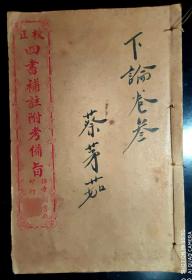 校正
四書補註附考備旨
下論卷叁
蔡芽茹